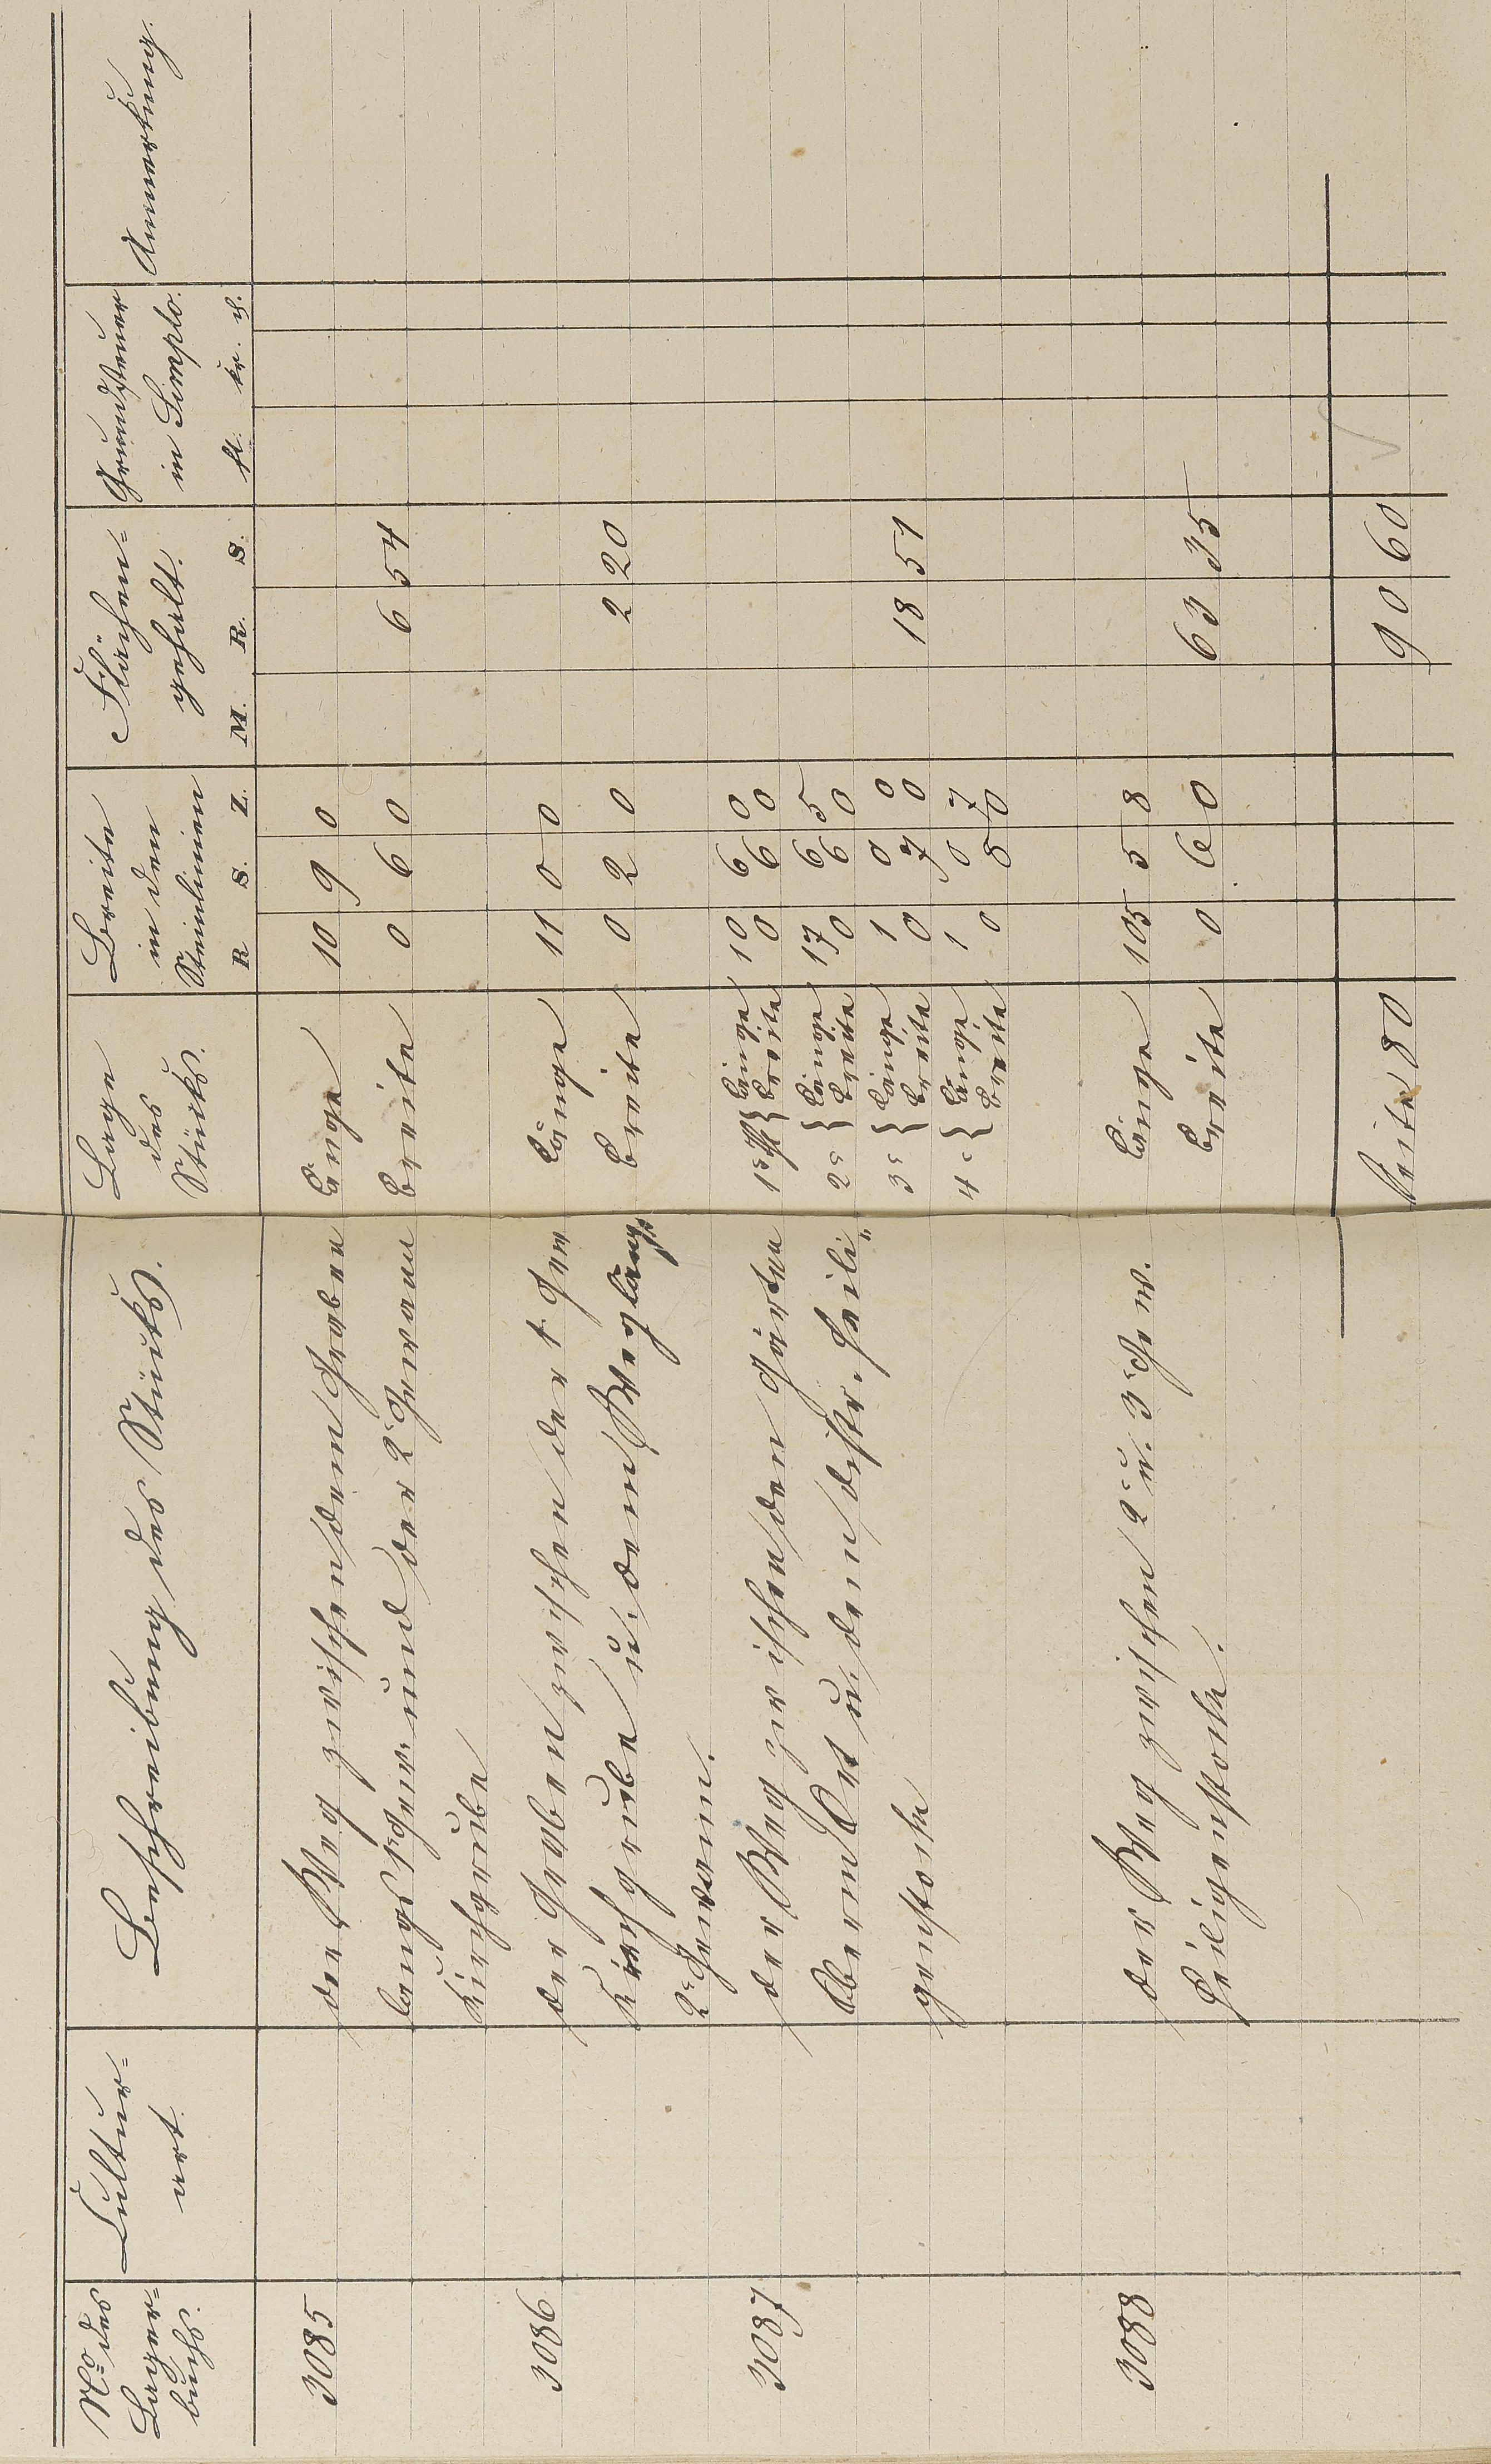 No des Lager-
buchs.
Cultur-
art
Beschreibung des Stücks.
Lage
des
Stücks.
Breite
in den
Steinlinien
R S. Z.
Flächen-
gehalt.
M. R. S.
Grundsteuer
in Simplo.
fl. kr. h.
Anmerkung.
3085 der Weg zwischen dem Graben Länge 10 9 0
längs 1r Gew. und der 2r Gewann Breite 0 6 0 6 54
Kirchgrube
3086 der Graben zwischen der 1. Gew Länge 11 0 0
Kirchgrube u. dem Weg längs Breite 0 2 0 2 20
2r Gewann.
3087 der Weg zwischen den Gärten 1s St { Länge 10 6 0
Breite 0 6 0
Obern Ort u. dem distr. Heili- 2s { Länge 17 6 5
Breite 0 6 0
genstocke 3s { Länge 1 0 0
Breite 0 7 0 18 51
4s { Länge 1 0 7
Breite 0 5 0
3088 der Weg zwischen 2r u. 3r Gew. Länge 105 5 8
Heiligenstocke. Breite 0 6 0 63 35
Seite 80 90 60